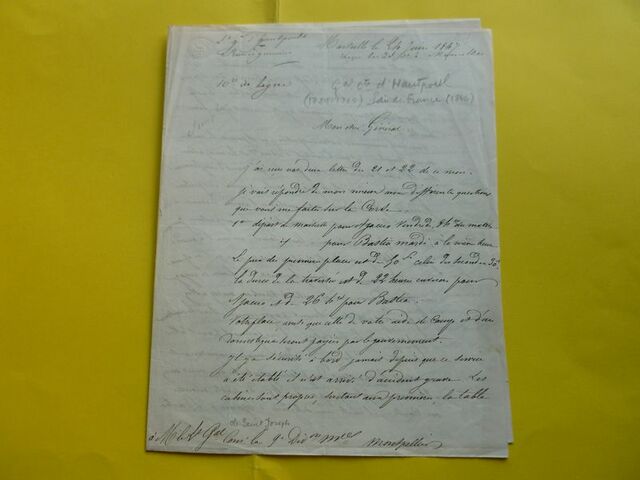 Marseille le 24 Juin 1847
10e de Ligne
Gal Cte d'Hautpoul
Pair de France (1846)
Mon cher Général,
J'ai reçu vos deux lettres du 21 et 22 de ce mois.
je vais répondre de mon mieux aux différentes questions
que vous me faites sur la Corse.
1er départ de Marseille pour Ajaccio Vendredi 8h du matin
pour Bastia mardi à la même heure
Le prix des premières places est de 50f celui des secondes 30f
la durée de la traversée est de 22 heures environ pour
Ajaccio et de 26 h pour Bastia.
Votre place ainsi que celle de votre aide de Camp et d'un
domestique seront payées par le gouvernement.
Il y a sécurité à bord jamais depuis que ce service
a été établi il n'est arrivé d'accident grave. Les
cabines sont propres, surtout aux premières. la table
de Saint Joseph
à M. le Lt Gal Comt la 9e Dion Mre Montpellier